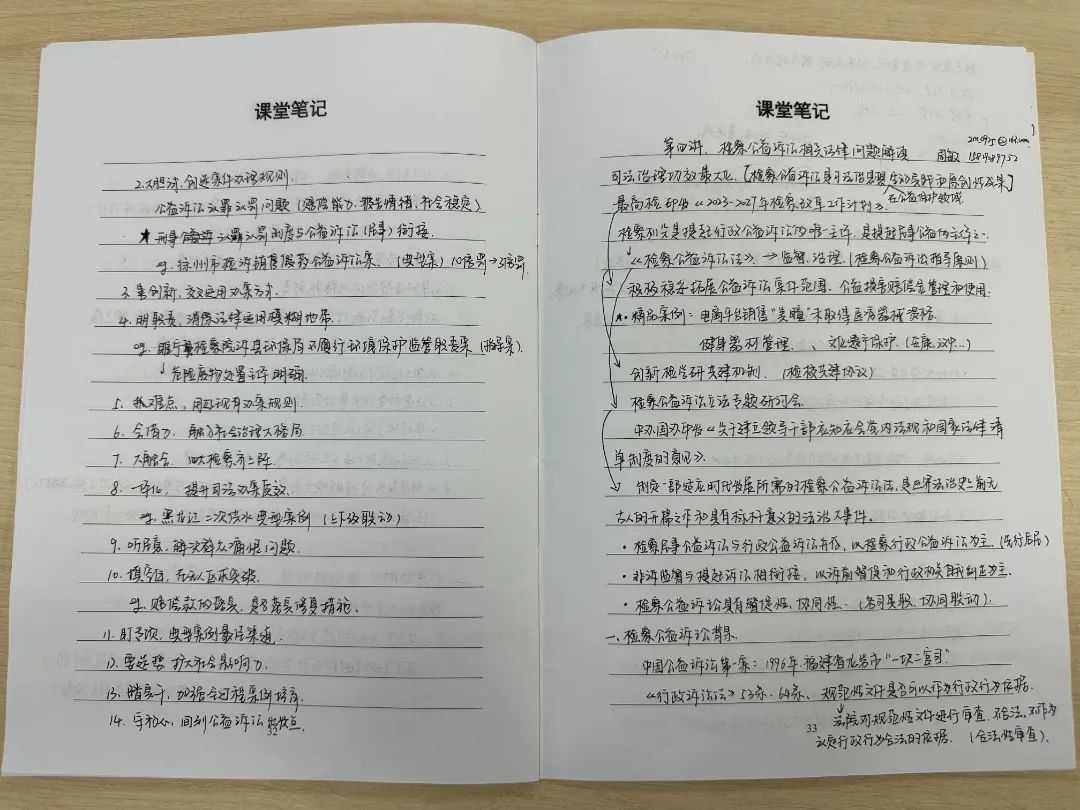 课堂笔记
2.大胆试,创造案件办理规则.
公益诉讼认罪认罚问题(赔偿能力、救助情绪、社会稳定)
★刑事 认罪认罚制度与公益诉讼(民事)衔接.
eg.徐州市检诉销售假药公益诉讼案.(典型案)10倍罚→3倍罚.
3.重创新,交叉运用办案方式.
4.明职责,消除法律适用模糊地带.
eg. 检察院诉县环保局不履行环境保护监管职责案(指导案).
↓危险废物处置主体明确.
5.抓难点,用好现有办案规则.
6.会借力,融入社会治理大格局.
7.大融合,四大检察齐上阵.
8.一体化,提升司法办案质效.
eg.黑龙江二次供水典型案例(上下级联动)
9.听民意,解决群众痛恨问题.
10.填空白,在无人区求突破.
eg.赔偿款的 ,是否 修复措施、
11.盯 ,典型案例最佳渠道.
12.要造势,扩大社会影响力.
13. ,加强全过程案例培育.
14.守初心,回到公益诉讼 点.
32
课堂笔记
第四讲、检察公益诉讼相关法律问题解读 周敏
司法治理功效最大化.【检察公益诉讼是习法治思想生动实践和原创性成果】
在公益保护领域.
最高检印发《2023-2027年检察改革工作计划》.
检察机关是提起行政公益诉讼的唯一主体,是提起民事公益的主体之一.
《检察公益诉讼法》→监督、治理.(检察公益诉讼指导原则)
积极稳妥拓展公益诉讼案件范围.公益损害赔偿金管理和使用.
★·精品案例:电商平台销售"美瞳"未取得医疗器械资格.
健身器材管理、、文化遗产保护.(安康、汉中...)
创新检学研共建机制.(检校共建协议)
检察公益诉讼立法专题研讨会.
中办国办印发《关于建立领导干部应知应会党内法规和国家法律清
单制度的意见》.
制定一部适应时代发展所需的检察公益诉讼法,是世界法治史上前无
古人的开篇之作和具有标杆意义的法治大事件.
·检察民事公益诉讼与行政公益诉讼并行,以检察行政公益诉讼为主.(先行后民)
·非诉监督与提起诉讼相衔接,以诉前督促和行政机关自我纠正为主.
·检察公益诉讼具有督促性、协同性.(各司其职、协同联动).
一、检察公益诉讼背景.
中国公益诉讼第一案:1996年.福建省龙岩市"一块二官司".
《行政诉讼法》53条、64条、规范性文件是否可以作为行政行为依据.
↓法院对规范性文件进行审查,不合法,不作为
认定行政行为合法的依据.(合法性审查)、
33